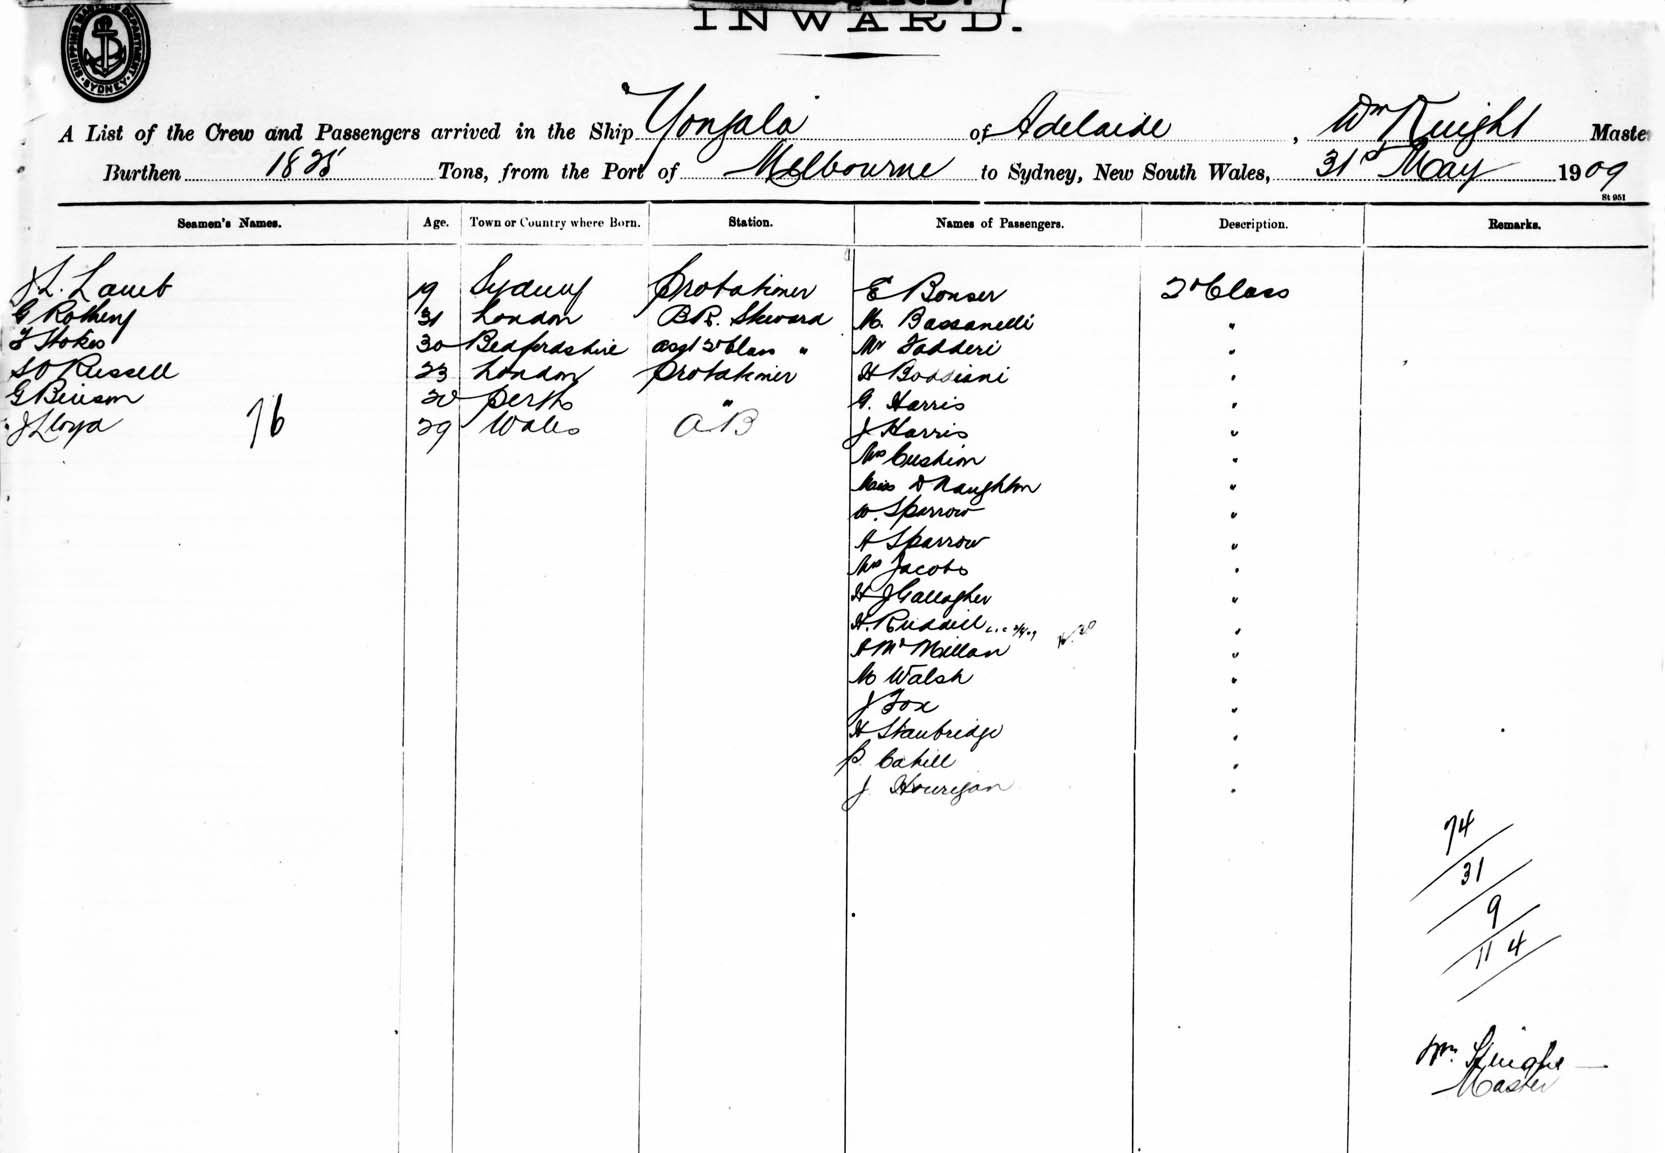 SHIPPING MASTERS DEPARTMENT SYDNEY
INWARD.
A List of the Crew and Passengers arrived in the Ship Yongala of Adelaide, Wm Knight Maste
Burthen 1825 Tons, from the Port of Melbourne to Sydney, New South Wales, 31st May 1909
St 951
Seamen's Names. Age. Town or Country where Born. Station. Names of Passengers. Description. Remarks.
J L. Lamb 19 Sydney Probationer E Bonser 2d Class
G Rothery 31 London B.R. Steward M. Bassanelli "
F Stokes 30 Bedfordshire asst 2d Class " Mr Fadderi "
S O Russell 23 London Probationer H Bodsiani "
G 20 Perth " G. Harris "
J Lloyd 76 29 Wales A B J Harris "
Mrs Cushion "
Miss D Naughton "
W. Sparrow "
A Sparrow "
Mrs Jacobs "
H J Gallagher "
H. Riddell "
A McMillan "
M Walsh "
J Fox "
H Stanbridge "
P. Cahill "
J. Hourigan "
74
31
9
114
Wm. Knight
Master